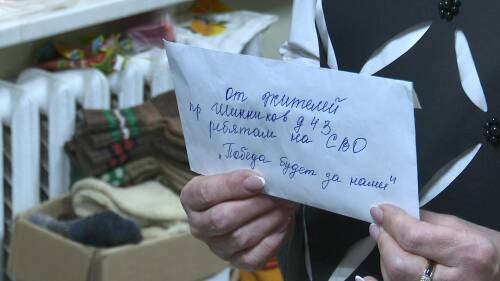 от жителей
пр Шинников д 43
ребятам на СВО
„Победа будет за нами"